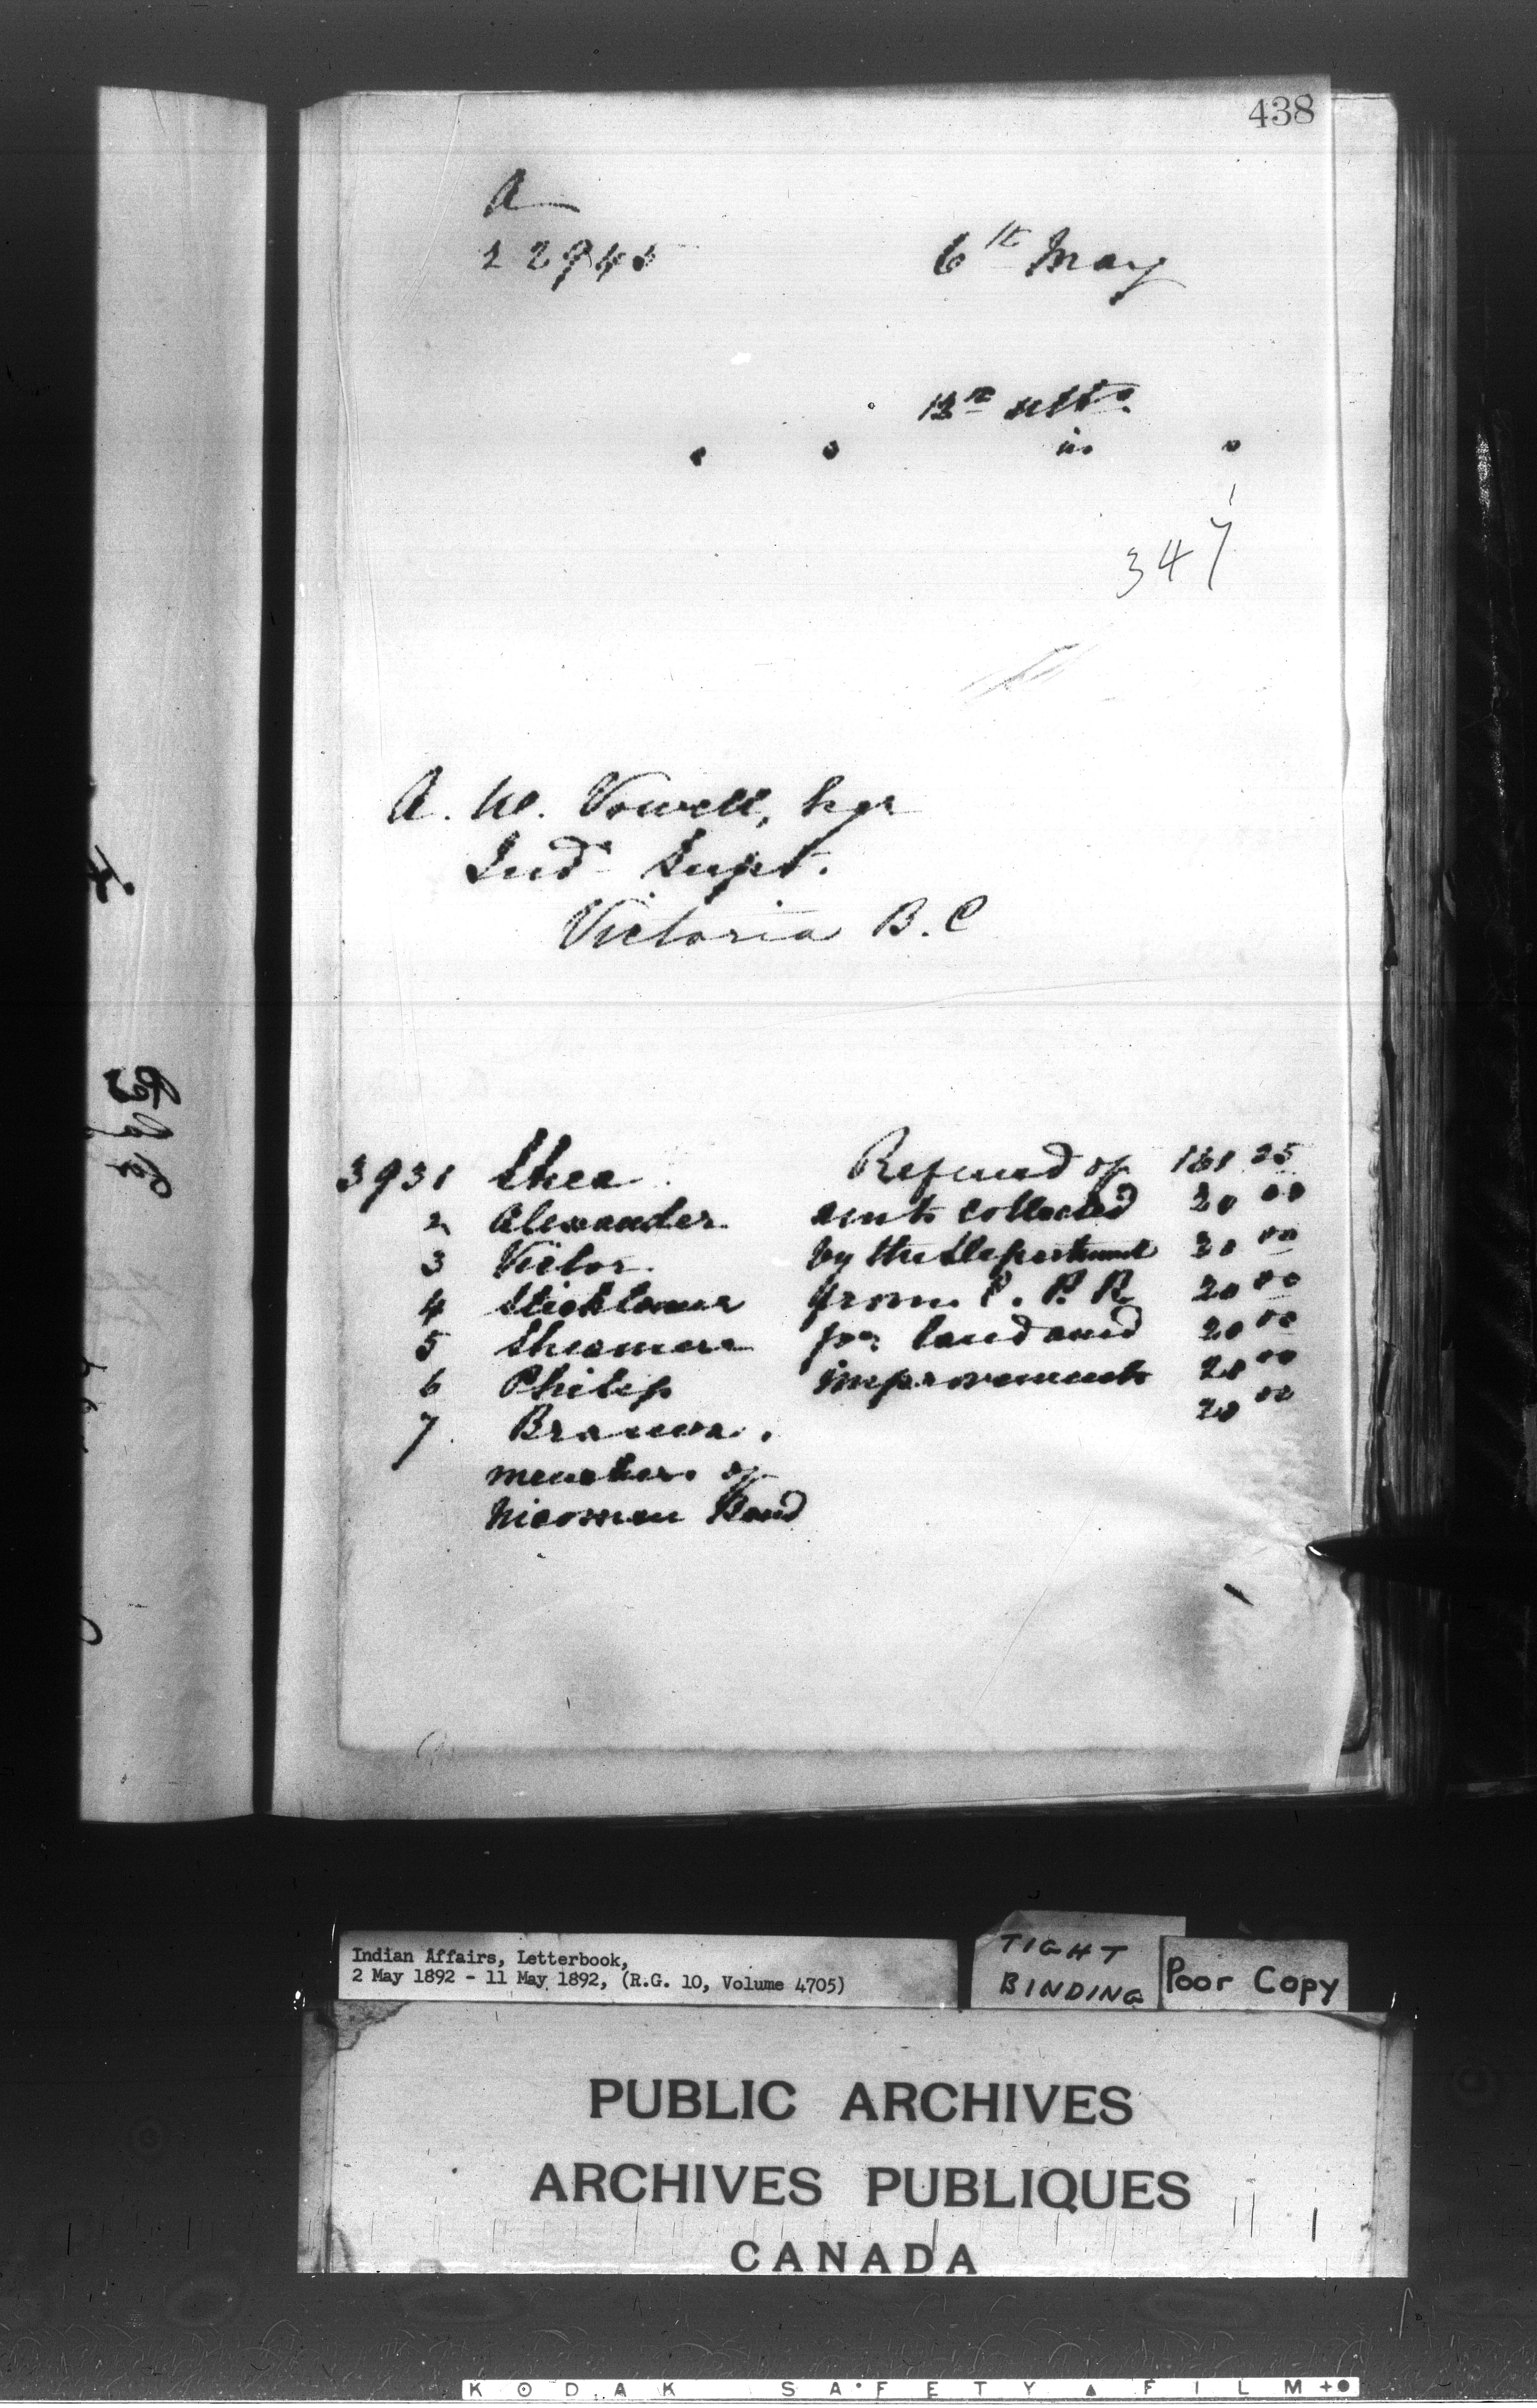 438
A
22945
6th May
12th ulto.
in
347
A. W. Vowell, Esqr
Ind. Supt.
Victoria B.C
3931 Shea Refund of 181 25
2 Alexander rents collected 20 00
3 Victor by the Department 20 00
4 from C. P. R 20 00
5 for land and 20 00
6 Philip improvements 20 00
7 20 00
members of
Nicomen Band
Indian Affairs, Letterbook,
2 May 1892 - 11 May 1892, (R.G. 10, Volume 4705)
TIGHT
BINDING
Poor Copy
PUBLIC ARCHIVES
ARCHIVES PUBLIQUES
CANADA
KODAK SAFETY FILM